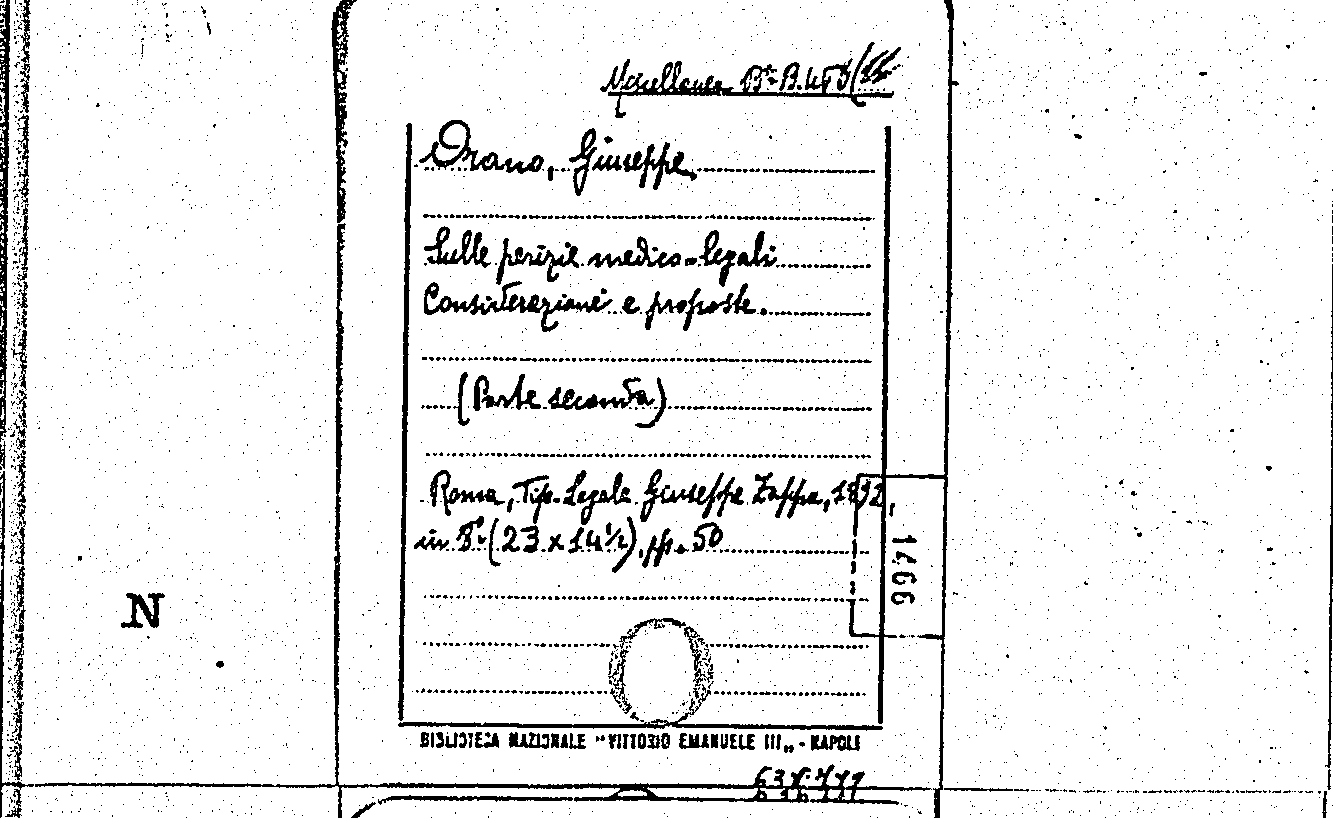 Miscellanea B*-B.
Orano, Giuseppe.
Sulle perizie medico-legali
Considerazioni e proposte.
(Parte seconda)
Roma, Tip. Legale Giuseppe Zappa, 1892,
in 8°. (23 x 14½), pp. 50
1466
N
BIBLIOTECA NAZIONALE "VITTORIO EMANUELE III„ - NAPOLI